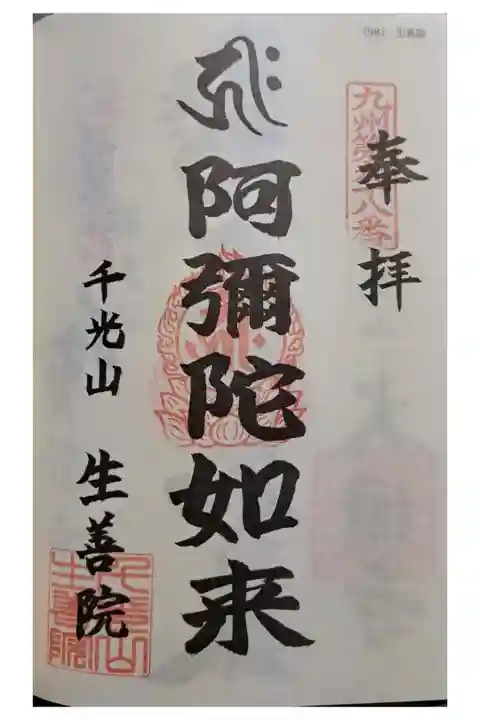 (98) 生善院
奉拝
阿彌陀如来
千光山 生善院